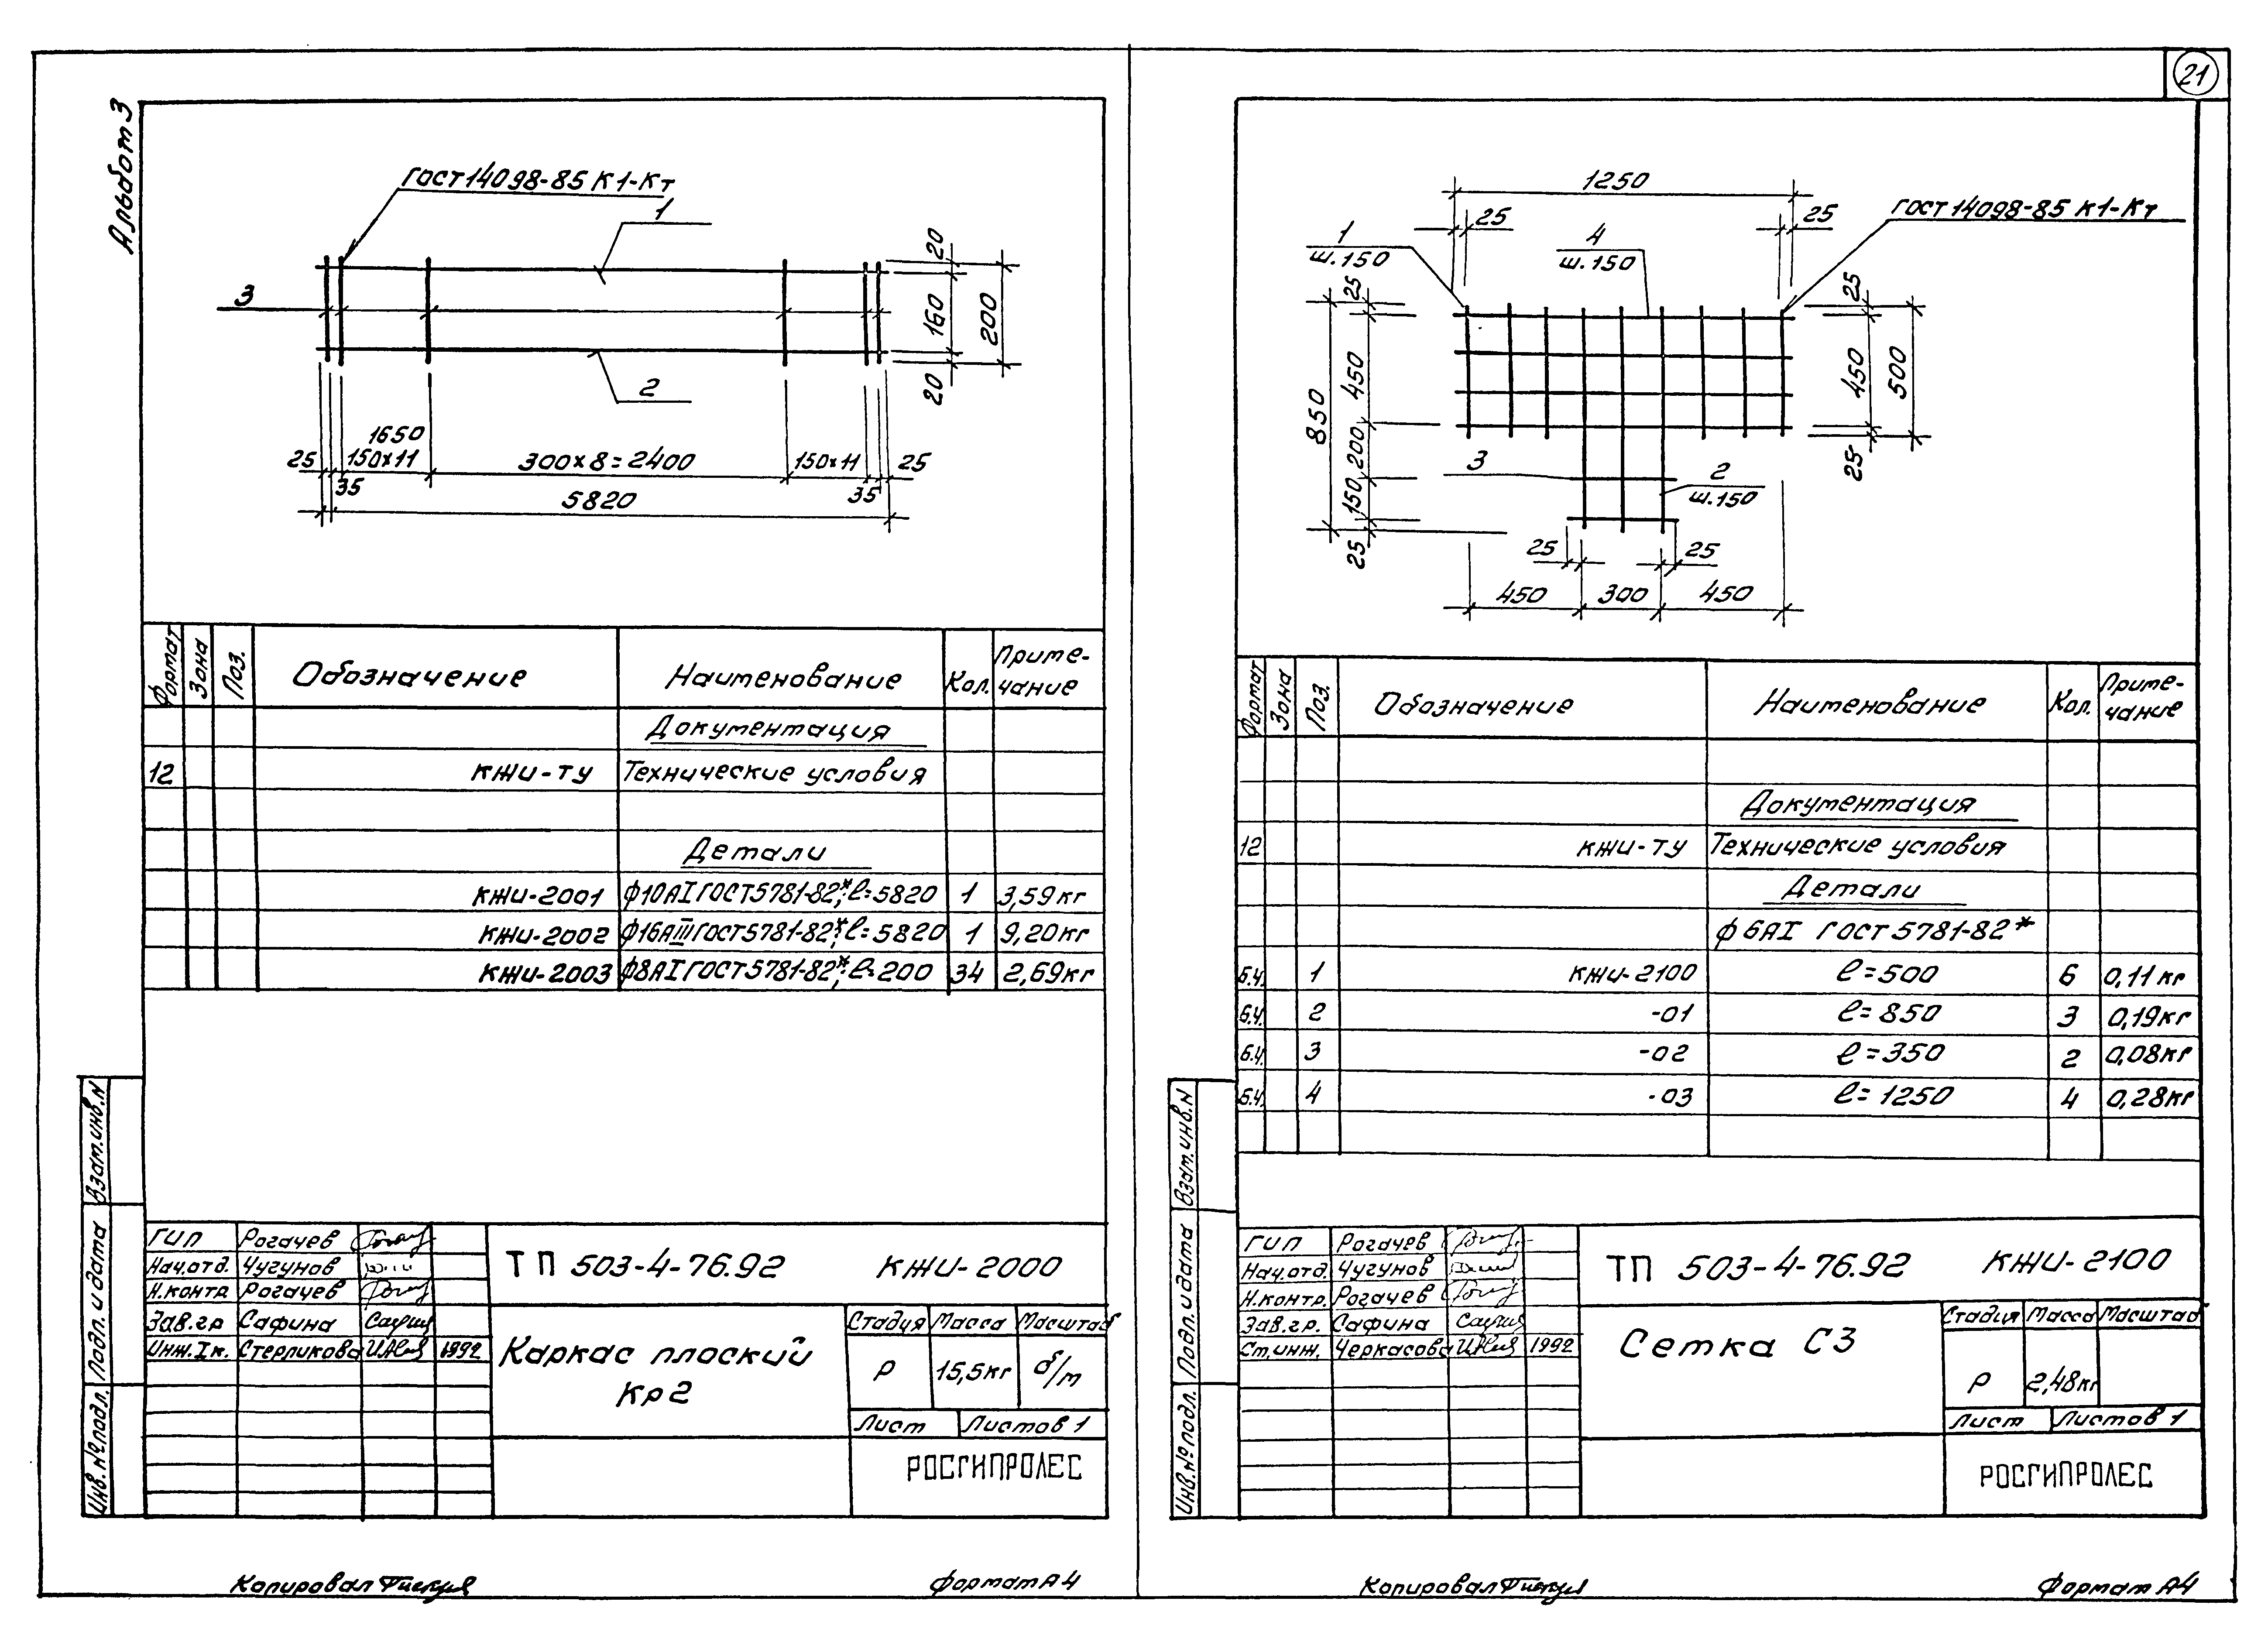 21
Альбом 3
ГОСТ 14098-85 К1-Кт
1
3
2
20
160
20
200
1650
25 150х11 300х8=2400 150х11 25
35 35
5820
Формат Зона Поз. Обозначение Наименование Кол. Приме-
чание
Документация
12 КЖИ-ТУ Технические условия
Детали
КЖИ-2001 ф10АI ГОСТ5781-82*; ℓ=5820 1 3,59кг
КЖИ-2002 ф16АIII ГОСТ5781-82*; ℓ=5820 1 9,20кг
КЖИ-2003 ф8АI ГОСТ5781-82*; ℓ=200 34 2,69кг
Взам.инв.N
Подп. и дата
Инв.№подл.
ГИП Рогачев
Нач.отд. Чугунов
Н.контр Рогачев
Зав.гр Сафина
Инж.Iк. Стерликова 1992
ТП 503-4-76.92 КЖИ-2000
Каркас плоский
Кр2
Стадия Масса Масштаб
Р 15,5кг б/м
Лист Листов 1
РОСГИПРОЛЕС
Копировал
Формат А4
1250
25 25
ГОСТ 14098-85 К1-Кт
1
ш.150
4
ш.150
25
450
200
150
25
850
25
450
25
500
3
2
ш.150
25 25
450 300 450
Формат Зона Поз. Обозначение Наименование Кол. Приме-
чание
Документация
12 КЖИ-ТУ Технические условия
Детали
ф 6АI ГОСТ 5781-82*
б.ч. 1 КЖИ-2100 ℓ=500 6 0,11кг
б.ч. 2 -01 ℓ=850 3 0,19кг
б.ч. 3 -02 ℓ=350 2 0,08кг
б.ч. 4 -03 ℓ=1250 4 0,28кг
Взам.инв.N
Подп. и дата
Инв.№подл.
ГИП Рогачев
Нач.отд. Чугунов
Н.контр. Рогачев
Зав.гр. Сафина
Ст.инж. Черкасова 1992
ТП 503-4-76.92 КЖИ-2100
Сетка С3
Стадия Масса Масштаб
Р 2,48кг
Лист Листов 1
РОСГИПРОЛЕС
Копировал
Формат А4